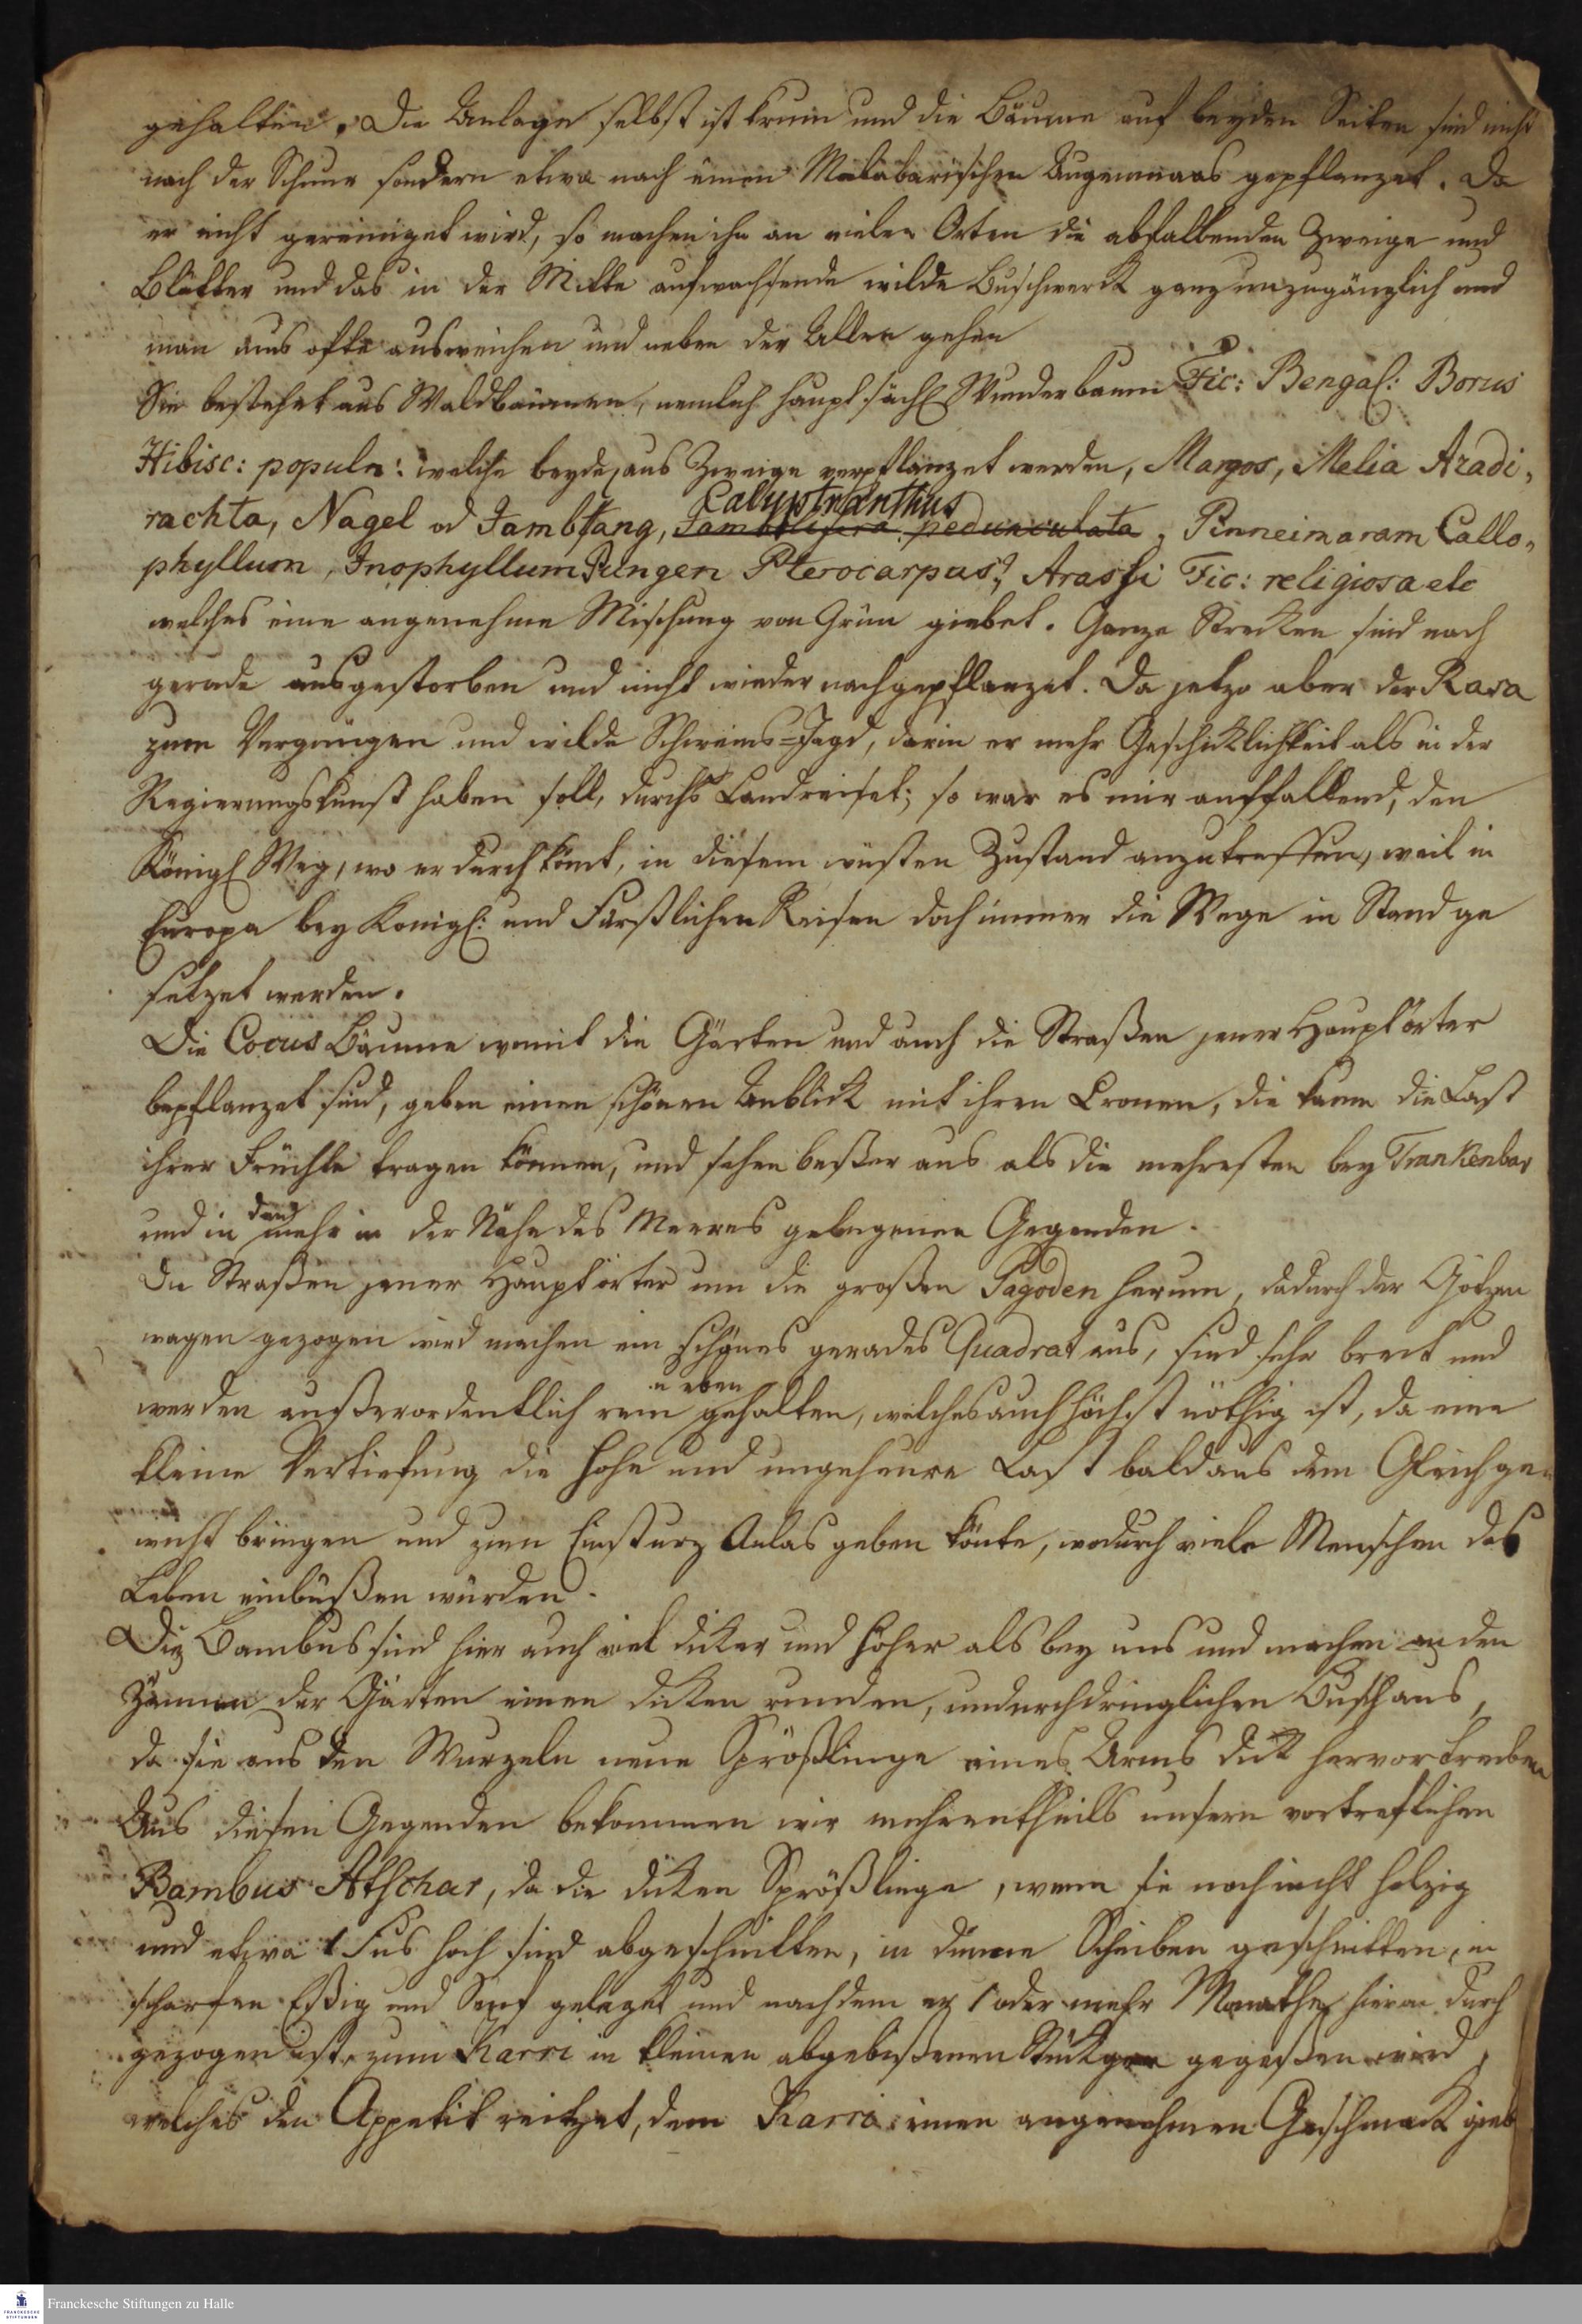 gehalten. Die Anlage selbst ist krum und die Bäume auf beyden Seiten sind nicht
nach der Schnur sondern etwa nach einem Malabarischen Augenmaas gepflanzet. Da
er nicht gereiniget wird, so machen ihn an vielen Orten die abfallenden Zweige und
Blätter und das in der Mitte aufwachsende wilde Buschwerk ganz unzugänglich und
man mus ofte ausweichen und neben der Allee gehen
Sie bestehet aus Waldbäumen, nemlich hauptsächl Wunderbaum Fic: Bengal: Borus
Hibisc: populn: welche beyde aus Zweige verpflanzet werden, Margos, Melia Azadi„
rachta, Nagel od Jamblang, Jambolifera pedunculata Calyptranthus, Pinneimaram Callo„
phyllum, Inophyllum Pungen Pterocarpus?, Arassi Fic: religiosa etc
welches eine angenehme Mischung von Grün giebet. Ganze Strecken sind nach
gerade ausgestorben und nicht wieder nachgepflanzet. Da jetzo aber der Rasa
zum Vergnügen und wilde Schweins-Jagd, darin er mehr Geschicklichkeit als in der
Regierungskunst haben soll, durchs Land reiset; so war es mir auffallend, den
Königl Weg, wo er durch kömt, in diesem wüsten Zustand anzutreffen, weil in
Europa bey Konigl: und Fürstlichen Reisen doch immer die Wege in Stand ge
setzet werden.
Die Cocus Bäume womit die Gärten und auch die Straßen jener Hauptörter
bepflanzet sind, geben einen schönen Anblick mit ihren Cronen, die kaum die Last
ihrer Früchte tragen können, und sehen beßer aus als die mehresten bey Trankenbar
und in den mehr in der Nähe des Meeres gelegenen Gegenden.
Die Straßen jener Hauptörter um die großen Pagoden herum, dadurch der Götzen
wagen gezogen wird machen ein schönes gerades Quadrat aus, sind sehr breit und
werden außerordentlich rein u eben gehalten, welches auch höchst nöthig ist, da eine
kleine Vertiefung die hohe und ungeheure Last bald aus dem Gleichge„
wicht bringen und zum Einsturz Anlas geben könte, wodurch viele Menschen das
Leben einbüßen würden.
Die Bambus sind hier auch viel dicker und höher als bey uns und machen an den
Zäunen der Gärten einen dicken runden, undurchdringlichen Busch aus,
da sie aus den Wurzeln neue Sprößlinge eines Arms dick hervortreiben
Aus diesen Gegenden bekommen wir mehrentheils unsern vortreflichen
Bambus Atschar, da die dicken Sprößlinge, wenn sie noch nicht holzig
und etwa 1 Fus hoch sind abgeschnitten, in dünne Scheiben geschnitten, in
scharfen Eßig und Senf geleget und nachdem er 1 oder mehr Monathe hieran durch
gezogen ist, zum Karri in kleinen abgebißenen Stückgen gegeßen wird,
welches den Appetit reitzet, dem Karri einen angenehmen Geschmack gieb
Franckesche Stiftungen zu Halle